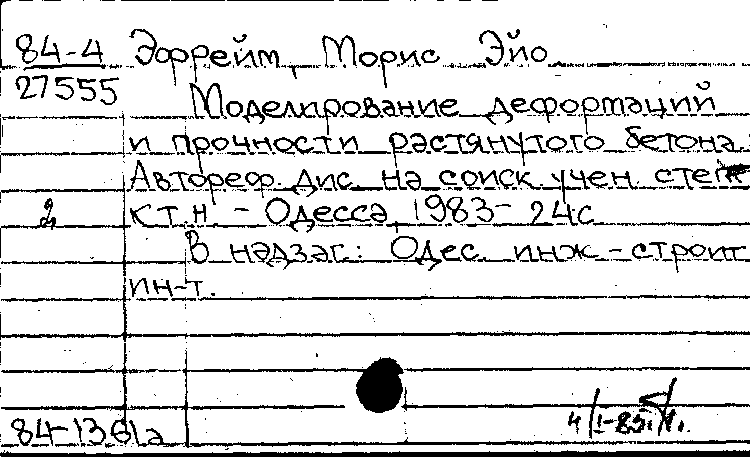 84-4 Эфрейм, Морис Эйо
27555
Моделирование деформаций
и прочности растянутого бетона.
Автореф. дис. на соиск. учен. степ
2 к.т.н. - Одесса, 1983- 24с
В надзаг.: Одес. инж-строит
ин-т.
84-1361а